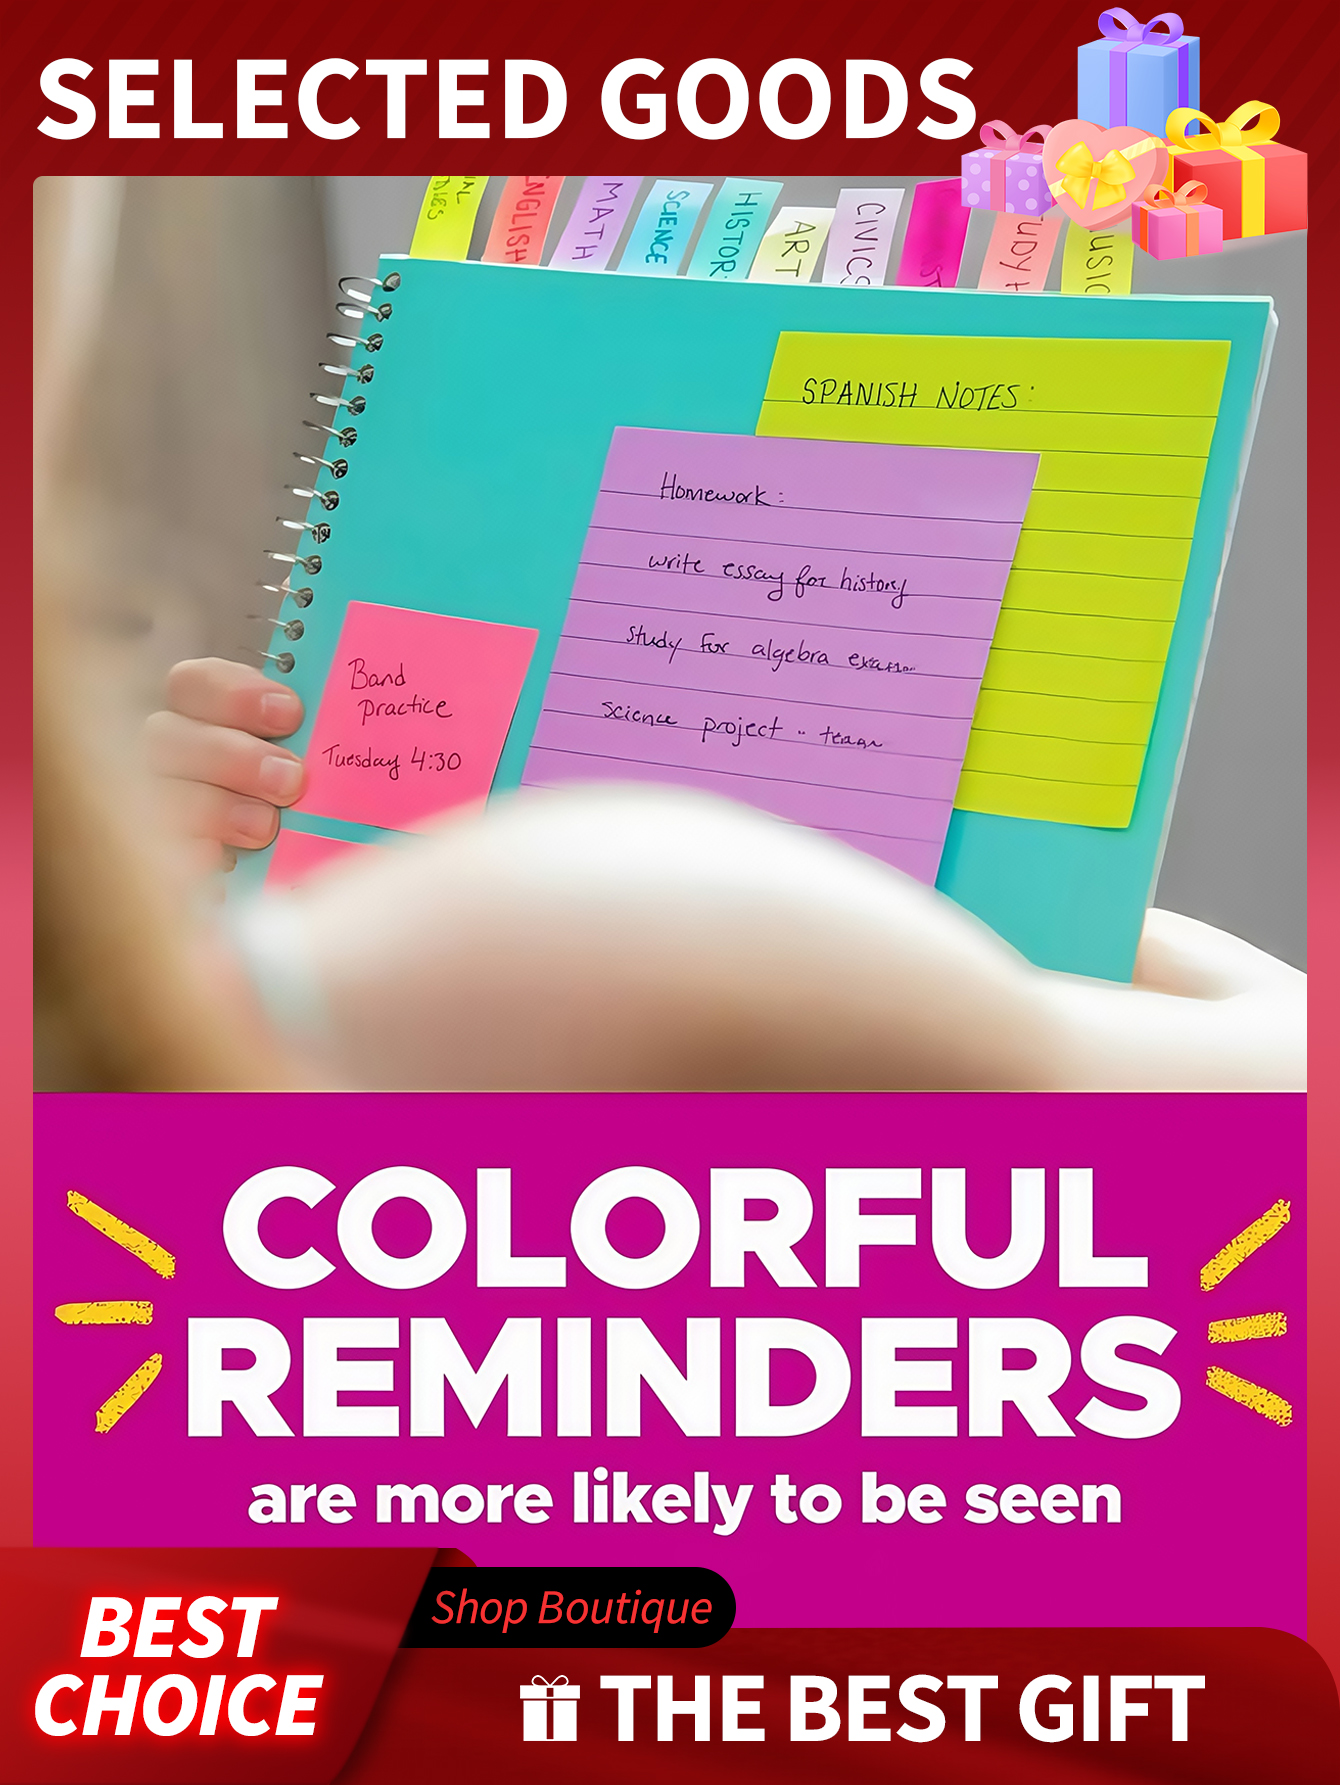 SELECTED GOODS
ENGLISH
MATH
SCIENCE
HISTOR
ART
CIVICS
SPANISH NOTES:
Homework:
write essay for history
study for algebra
science project -
Band
practice
Tuesday 4:30
COLORFUL
REMINDERS
are more likely to be seen
BEST
CHOICE
Shop Boutique
THE BEST GIFT